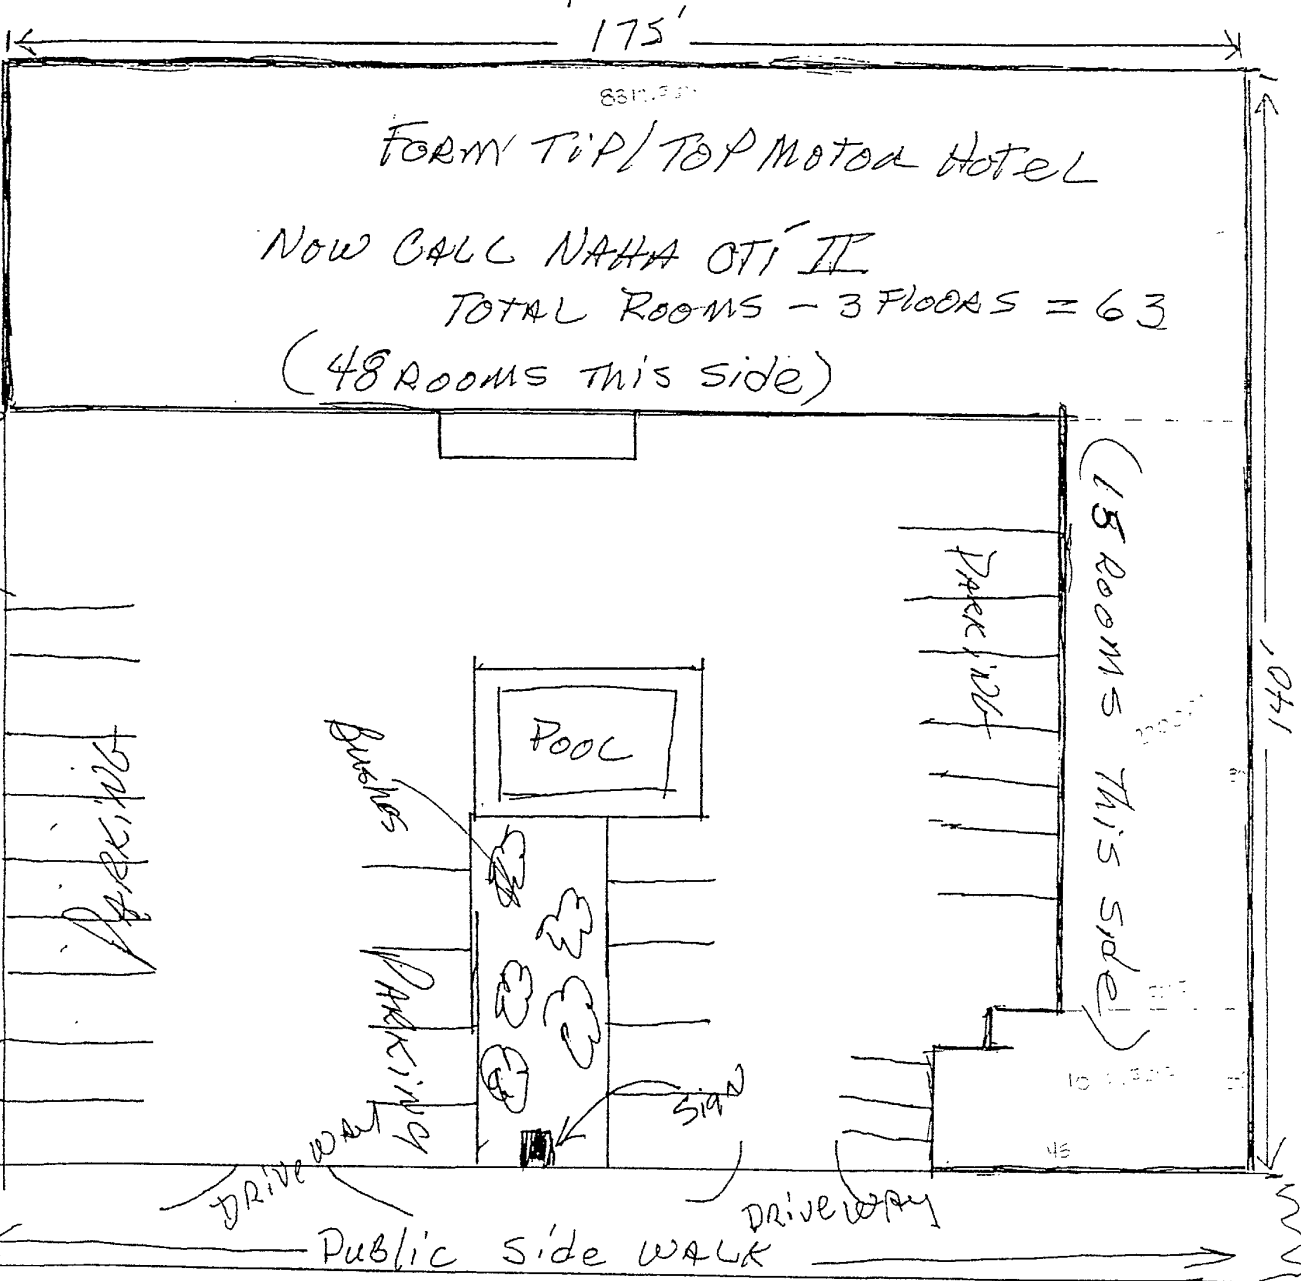 175'
FORM TIP/TOP MOTOR HOTEL
NOW CALL NAHA OTI II
TOTAL ROOMS - 3 FLOORS = 63
(48 ROOMS THIS SIDE)
(15 ROOMS THIS SIDE)
140'
PARKING
POOL
Bushes
PARKING
PARKING
SIGN
45
DRIVEWAY
DRIVEWAY
PUBLIC SIDE WALK